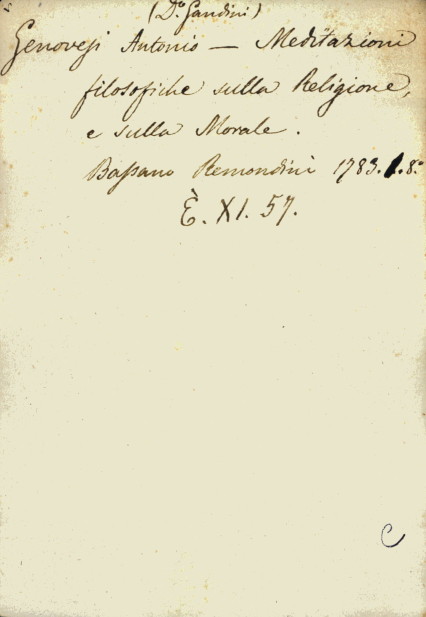 (D.º Gandini)
Genovesi Antonio — Meditazioni
filosofiche sulla Religione,
e sulla Morale.
Bassano Remondini 1783. 1. 8.º
È. XI. 57.
C